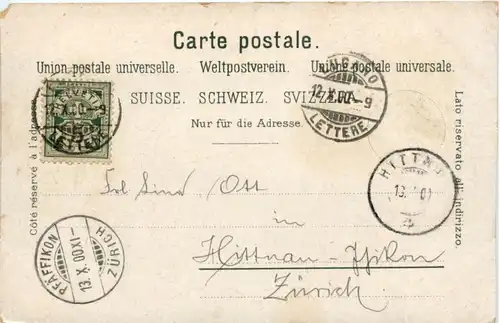 Carte postale.
Union postale universelle. Weltpostverein. Unione postale universale.
SUISSE. SCHWEIZ. SVIZZERA.
Nur für die Adresse.
Côté réservé à l'adresse.
Lato riservato all'indirizzo.
LETTERE
12.X.00-9
LETTERE
HITTNAU
PFÄFFIKON
13.X.00XI-
ZÜRICH
Ott
in
Hittnau-
Zürich